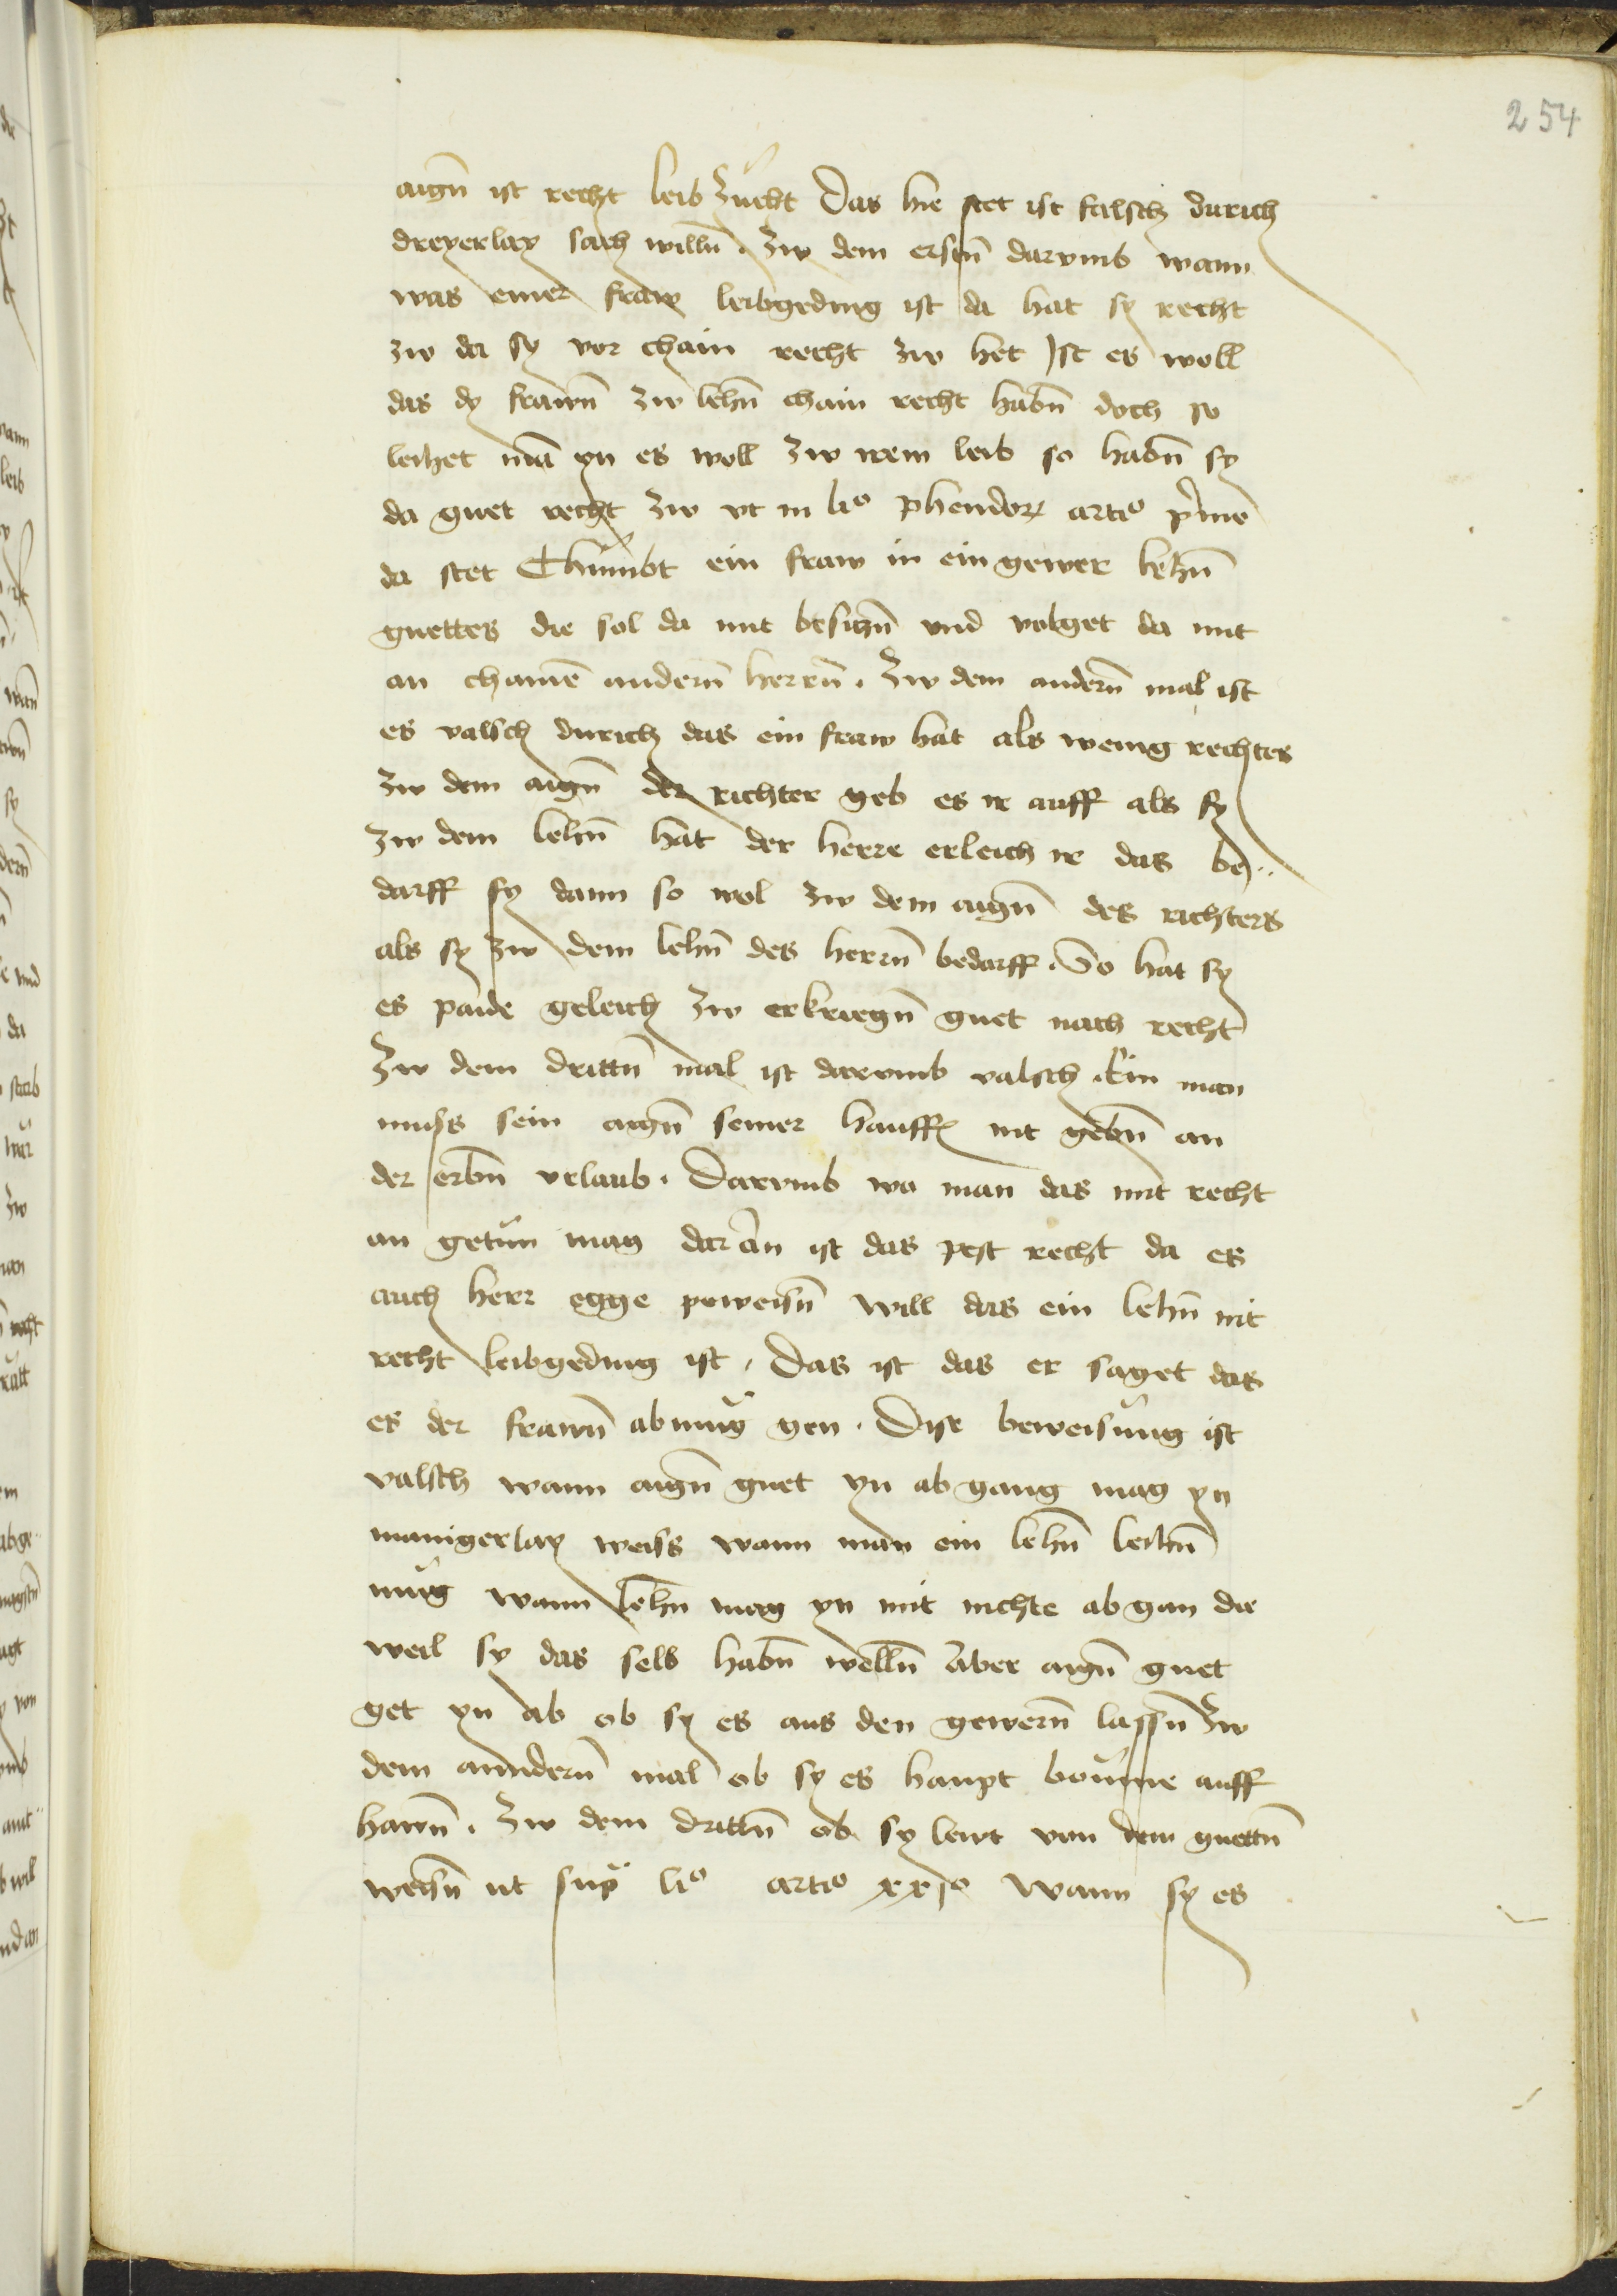 254
aign̄ ist recht leib zucht Das hie stet ist falsch durich
dreyerlay sach willn̄ . Zw dem ersten̄ darvmb wann
was einer fraw leibgeding ist da hat sy recht
zw da sy vor chain recht zw het Ist es woll
das dy frawn̄ zw lehn̄ chain recht habn̄ doch so
leihet mā yn es woll zw irem leib so habn̄ sy
da guet recht zw vt in lio phendor artio primo
da stet Chumbt ein fraw in ein gewer lehn̄
guettes die sol da mit besitzn̄ vnd volget da mit
an chainē andern̄ herrn̄ . Zw dem andern̄ mal ist
es valsch durich das ein fraw hat als wenig rechtes
zw dem aign̄ der richter geb es ir auff als sy
zw dem lehn̄ hat der herre erleich ir das be¨
darff sy dann so wol zw dem aign̄ des richters
als sy zw dem lehn̄ des herrn̄ bedarff . So hat sy
es paide geleich zw erkriegn̄ guet nach recht
Zw dem drittn̄ mal ist darvmb valsch . Ein man
muss sein aign̄ seiner hauffr nit gebn̄ an
der erbn̄ vrlaub . Darvmb wo man das mit recht
an getun mag dar an ist das pest recht da es
auch herr egge poweisn̄ will das ein lehn̄ nit
recht leibgeding ist . Das ist das er saget das
es der frawn̄ ab mug gen . Dise beweisung ist
valsch wann aign̄ guet yn ab gang mag yn
manigerlay weiss wann man ein lehn̄ leihn̄
mug wann lehn̄ mag yn mit nichte ab gan die
weil sy das selb habn̄ welln̄ aber aign̄ guet
get yn ab ob sy es aus den gewern̄ lassn̄ Zw
dem anndern̄ mal ob sy es haupt boume auff
hawn̄ . Zw dem drittn̄ ob sy lewt von dem guettn̄
weisn̄ ut supra lio artio xxio Wann sy es